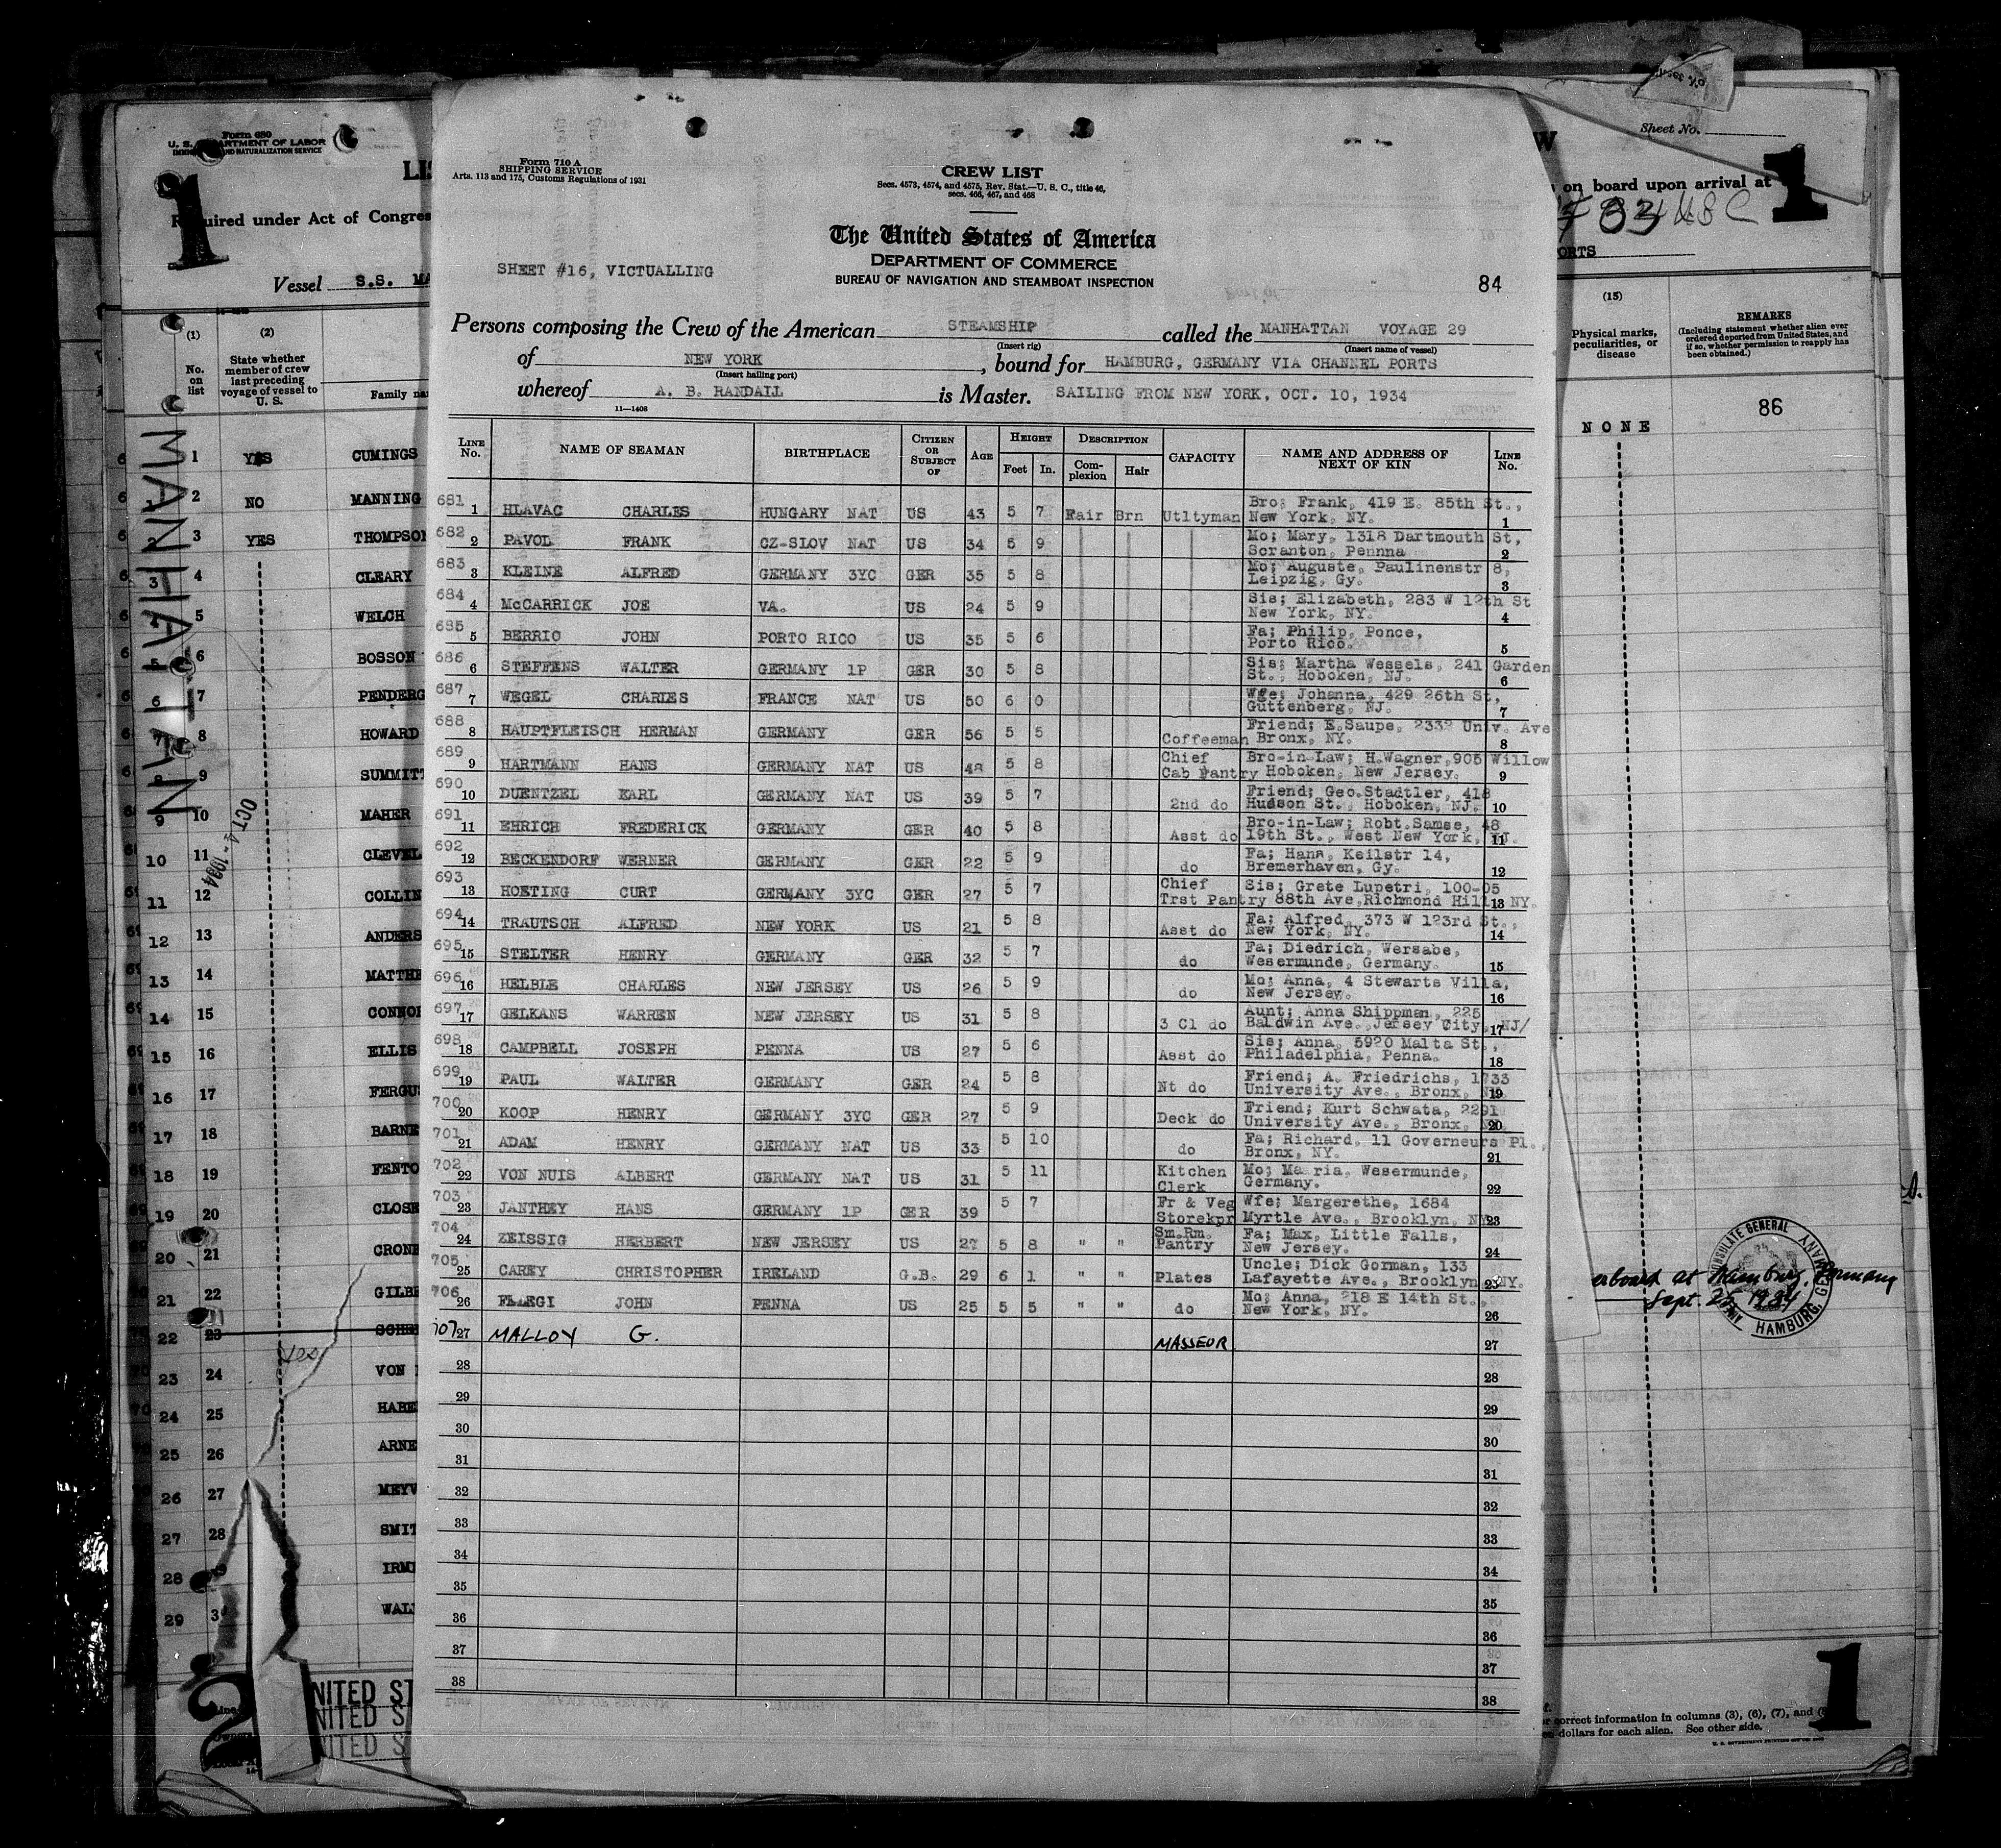 Form 710 A
SHIPPING SERVICE
Arts. 113 and 175, Customs Regulations of 1931
CREW LIST
Secs. 4573, 4574, and 4575, Rev. Stat.—U. S. C., title 46,
secs. 466, 467, and 468
The United States of America
DEPARTMENT OF COMMERCE
BUREAU OF NAVIGATION AND STEAMBOAT INSPECTION
SHEET #16, VICTUALLING
84
Persons composing the Crew of the American STEAMSHIP called the MANHATTAN VOYAGE 29
(Insert rig) (Insert name of vessel)
of NEW YORK, bound for HAMBURG, GERMANY VIA CHANNEL PORTS
(Insert hailing port)
whereof A. B. RANDALL is Master. SAILING FROM NEW YORK, OCT. 10, 1934
11—1408
LINE No. NAME OF SEAMAN BIRTHPLACE CITIZEN OR SUBJECT OF AGE HEIGHT Feet In. DESCRIPTION Complexion Hair CAPACITY NAME AND ADDRESS OF NEXT OF KIN LINE No.
681 1 HLAVAC CHARLES HUNGARY NAT US 43 5 7 Fair Brn Utltyman Bro; Frank, 419 E. 85th St., New York, NY. 1
682 2 PAVOL FRANK CZ-SLOV NAT US 34 5 9 Mo; Mary, 1318 Dartmouth St, Scranton, Pennna 2
683 3 KLEINE ALFRED GERMANY 3YC GER 35 5 8 Mo; Auguste, Paulinenstr 8, Leipzig, Gy. 3
684 4 McCARRICK JOE VA. US 24 5 9 Sis; Elizabeth, 283 W 12th St New York, NY. 4
685 5 BERRIO JOHN PORTO RICO US 35 5 6 Fa; Philip, Ponce, Porto Rico. 5
686 6 STEFFENS WALTER GERMANY 1P GER 30 5 8 Sis; Martha Wessels, 241 Garden St., Hoboken, NJ. 6
687 7 WEGEL CHARLES FRANCE NAT US 50 6 0 Wge; Johanna, 429 26th St, Guttenberg, NJ. 7
688 8 HAUPTFLEISCH HERMAN GERMANY GER 56 5 5 Coffeeman Friend; E.Saupe, 2332 Univ. Ave Bronx, NY. 8
689 9 HARTMANN HANS GERMANY NAT US 48 5 8 Chief Cab Pantry Bro-in-Law; H.Wagner,905 Willow Hoboken, New Jersey. 9
690 10 DUENTZEL KARL GERMANY NAT US 39 5 7 2nd do Friend; Geo.Stadtler, 418 Hudson St., Hoboken, NJ. 10
691 11 EHRICH FREDERICK GERMANY GER 40 5 8 Asst do Bro-in-Law; Robt.Samse, 48 19th St., West New York, NJ. 11
692 12 BECKENDORF WERNER GERMANY GER 22 5 9 do Fa; Hans, Keilstr 14, Bremerhaven, Gy. 12
693 13 HOETING CURT GERMANY 3YC GER 27 5 7 Chief Trst Pantry Sis; Grete Lupetri, 100-05 88th Ave,Richmond Hill NY. 13
694 14 TRAUTSCH ALFRED NEW YORK US 21 5 8 Asst do Fa; Alfred, 373 W 123rd St., New York, NY. 14
695 15 STELTER HENRY GERMANY GER 32 5 7 do Fa; Diedrich, Wersabe, Wesermunde, Germany. 15
696 16 HELBLE CHARLES NEW JERSEY US 26 5 9 do Mo; Anna, 4 Stewarts Villa, New Jersey. 16
697 17 GELKANS WARREN NEW JERSEY US 31 5 8 3 Cl do Aunt; Anna Shippman, 225 Baldwin Ave., Jersey City, NJ/ 17
698 18 CAMPBELL JOSEPH PENNA US 27 5 6 Asst do Sis; Anna, 5920 Malta St., Philadelphia, Penna. 18
699 19 PAUL WALTER GERMANY GER 24 5 8 Nt do Friend; A. Friedrichs, 1733 University Ave., Bronx, 19
700 20 KOOP HENRY GERMANY 3YC GER 27 5 9 Deck do Friend; Kurt Schwata, 2291 University Ave., Bronx, 20
701 21 ADAM HENRY GERMANY NAT US 33 5 10 do Fa; Richard, 11 Governeurs Pl., Bronx, NY. 21
702 22 VON NUIS ALBERT GERMANY NAT US 31 5 11 Kitchen Clerk Mo; Maria, Wesermunde, Germany. 22
703 23 JANTHEY HANS GERMANY 1P GER 39 5 7 Fr & Veg Storekpr Wfe; Margerethe, 1684 Myrtle Ave., Brooklyn, NY 23
704 24 ZEISSIG HERBERT NEW JERSEY US 27 5 8 " " Sm.Rm. Pantry Fa; Max, Little Falls, New Jersey. 24
705 25 CAREY CHRISTOPHER IRELAND G.B. 29 6 1 " " Plates Uncle; Dick Gorman, 133 Lafayette Ave., Brooklyn NY. 25
706 26 FLLEGI JOHN PENNA US 25 5 5 " " do Mo; Anna, 218 E 14th St., New York, NY. 26
707 27 MALLOY G. MASSEUR 27
28 28
29 29
30 30
31 31
32 32
33 33
34 34
35 35
36 36
37 37
38 38
Form 680
U. S. DEPARTMENT OF LABOR
1
Required under Act of Congres
Vessel S.S. MA
(1) (2)
No. on list
State whether member of crew last preceding voyage of vessel to U. S.
Family na
MANHATTAN
OCT 4 - 1934
1 YES CUMINGS
2 NO MANNING
3 YES THOMPSON
4 CLEARY
5 WELCH
6 BOSSON
7 PENDERG
8 HOWARD
9 SUMMITT
10 MAHER
11 CLEVEL
12 COLLIN
13 ANDERS
14 MATTHE
15 CONNO
16 ELLIS
17 FERGUS
18 BARNE
19 FENTO
20 CLOSE
21 CRONE
22 GILBE
23 SCHR
yes
24 VON
25 HABE
26 ARNE
27 MEYV
28 SMIT
IRMI
WAL
2
NITED ST
NITED S
NITED S
Sheet No.
on board upon arrival at
1
ORTS
(15)
Physical marks, peculiarities, or disease
REMARKS
(Including statement whether alien ever ordered deported from United States, and if so, whether permission to reapply has been obtained.)
86
NONE
erboard at Hamburg, Germany
Sept. 26 1934
HAMBURG, GERMANY
correct information in columns (3), (6), (7), and
dollars for each alien. See other side.
1